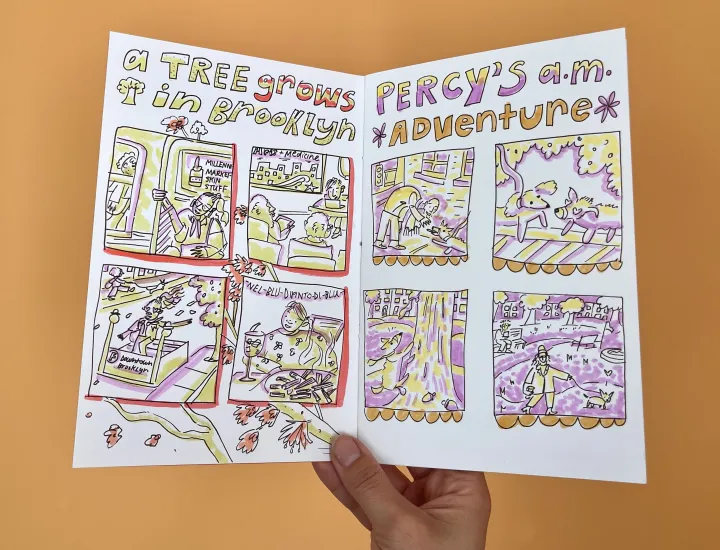 a TREE grows
in Brooklyn
MILLENN
MARKET
SKIN
STUFF
+ Medicine
Downtown
Brooklyn
"NEL-BLU-DIPINTO-DI-BLU"
PERCY'S a.m.
ADVENTURE